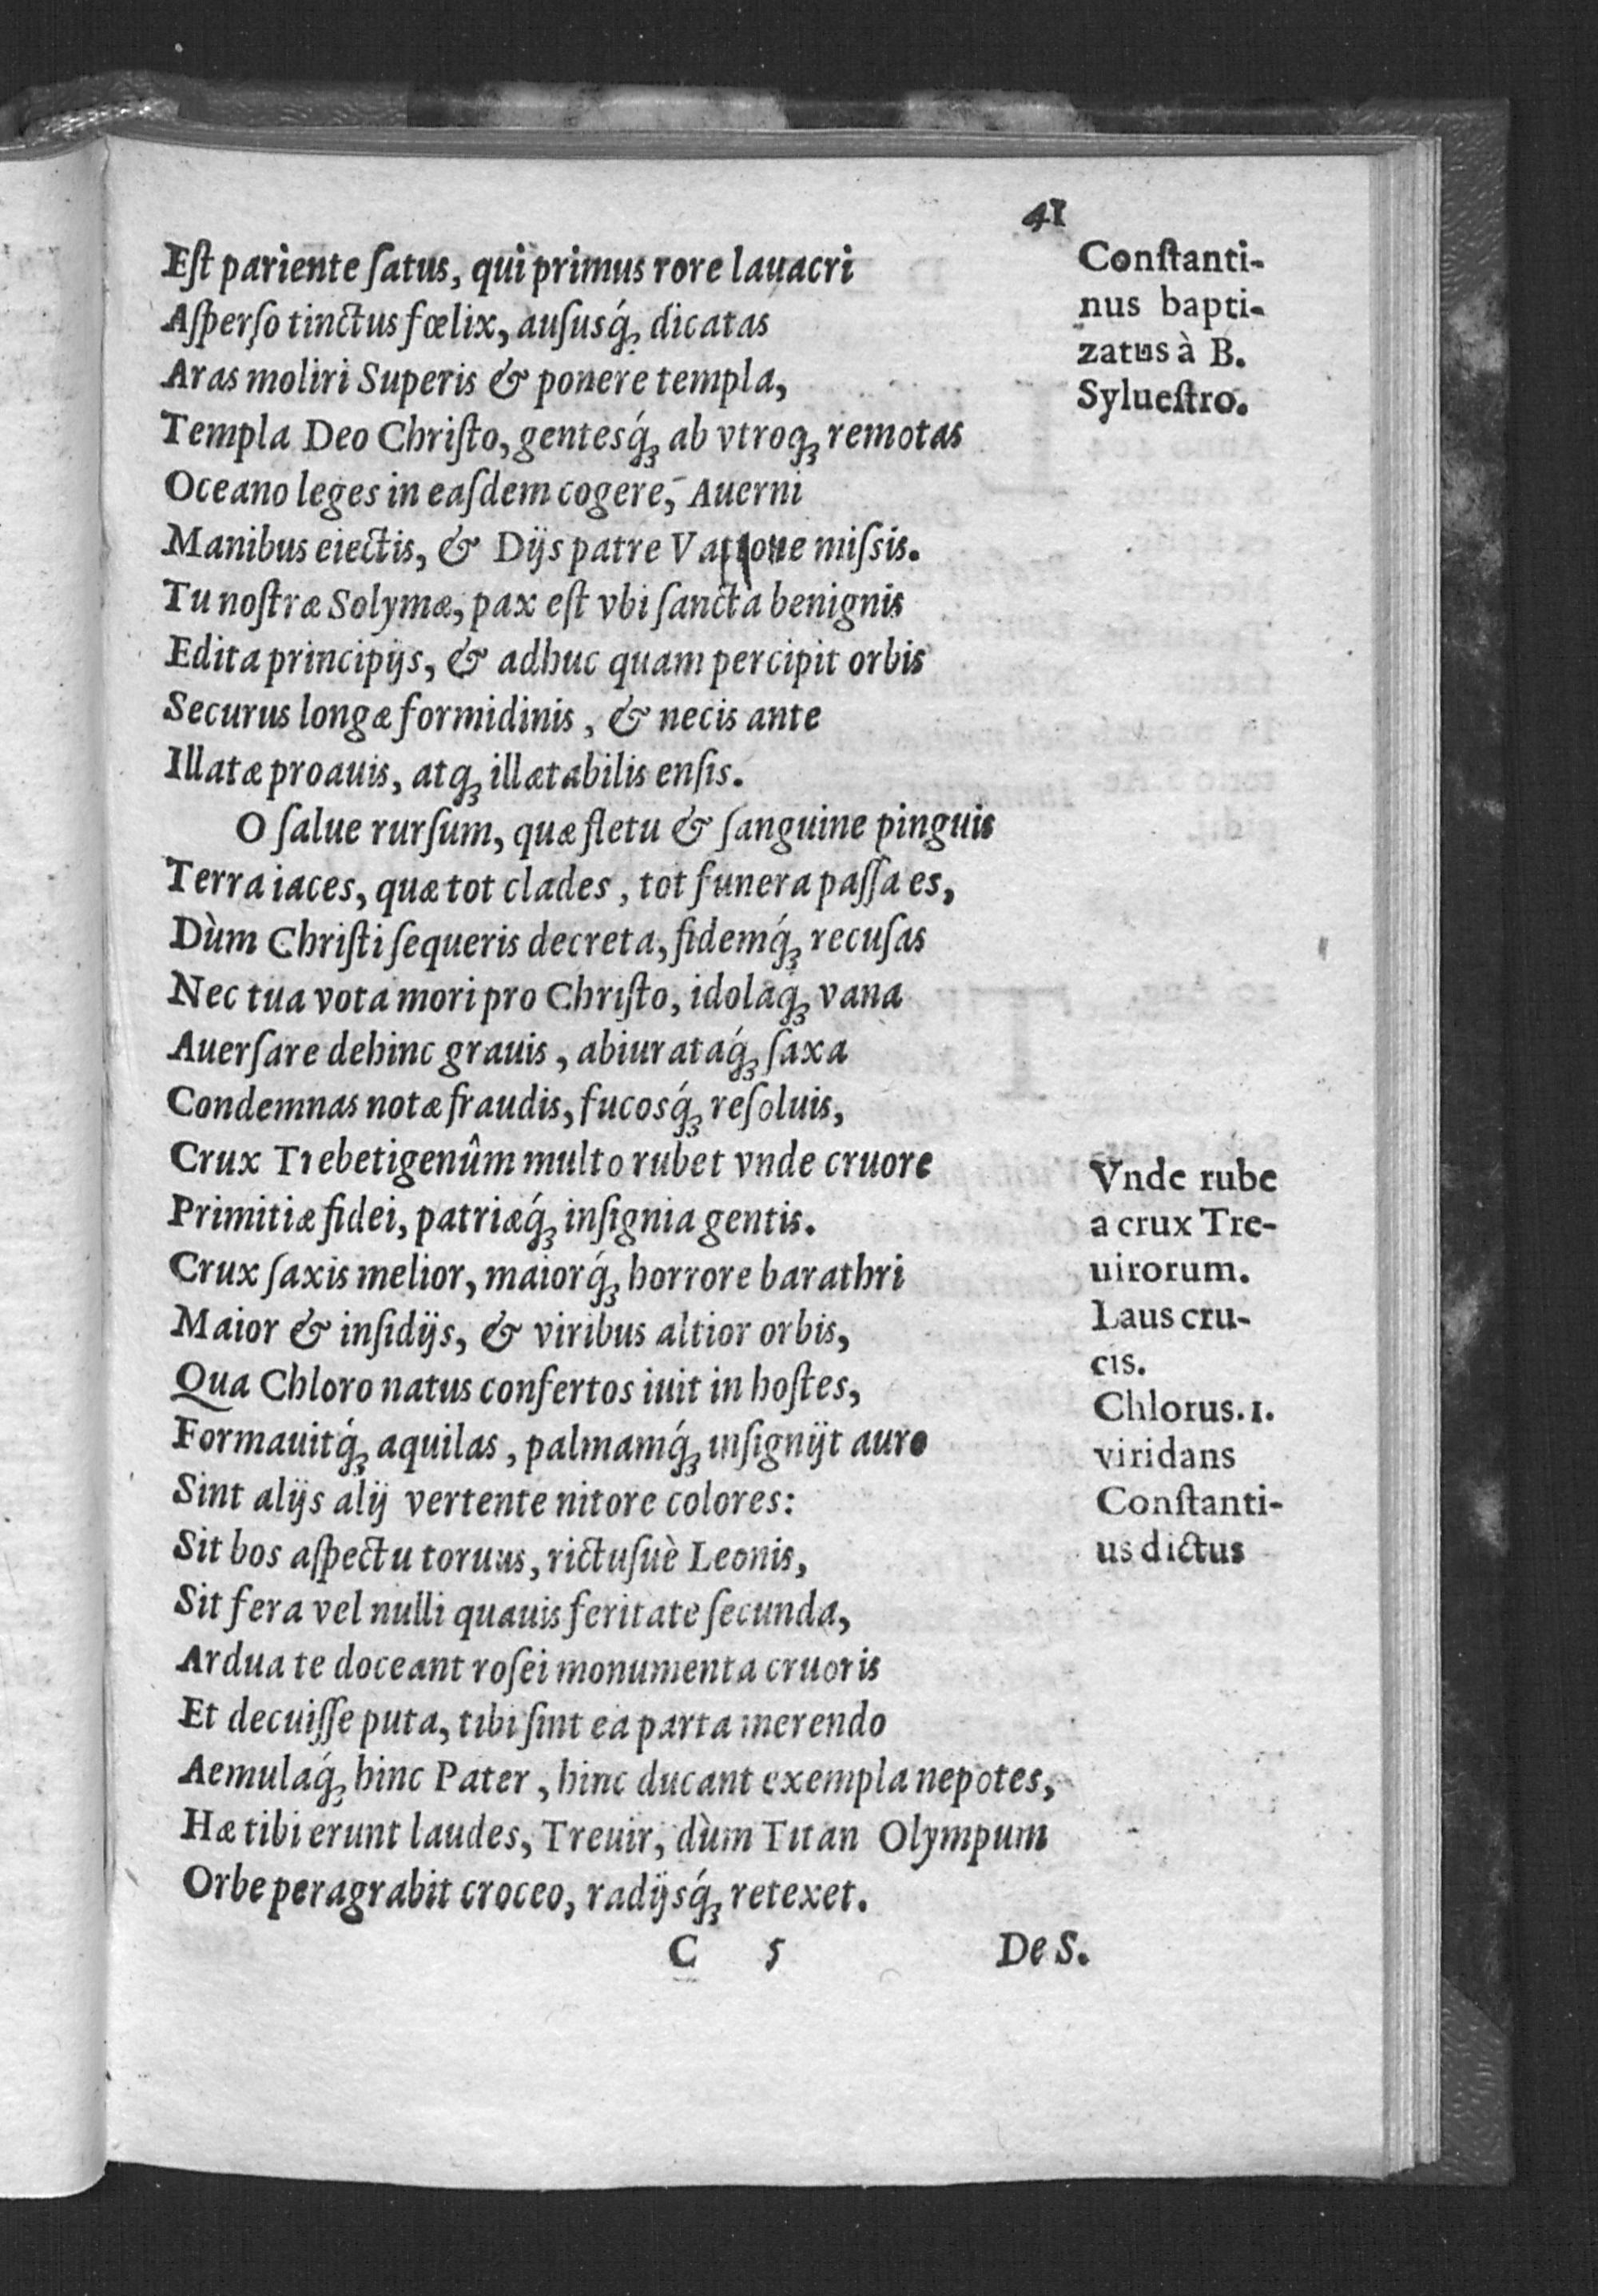 41
Eſt pariente ſatus, qui primus rore lauacri
Aſperſo tinctus fœlix, auſusq́; dicatas
Aras moliri Superis & ponere templa,
Templa Deo Chriſto, gentesq́; ab vtroq; remotas
Oceano leges in eaſdem cogere, Auerni
Manibus eiectis, & Dijs patre miſsis.
Tu noſtræ Solymæ, pax eſt vbi ſancta benignis
Edita principijs, & adhuc quam percipit orbis
Securus longæ formidinis, & necis ante
Illatæ proauis, atq; illætabilis enſis.
O ſalue rurſum, quæ fletu & ſanguine pinguis
Terra iaces, quæ tot clades, tot funera paſſa es,
Dùm Chriſti ſequeris decreta, fidemq́; recuſas
Nec tua vota mori pro Chriſto, idolaq́; vana
Auerſare dehinc grauis, abiurataq́; ſaxa
Condemnas notæ fraudis, fucosq́; reſoluis,
Crux Trebetigenûm multo rubet vnde cruore
Primitiæ fidei, patriæq́; inſignia gentis.
Crux ſaxis melior, maiorq́; horrore barathri
Maior & inſidijs, & viribus altior orbis,
Qua Chloro natus confertos iuit in hoſtes,
Formauitq́; aquilas, palmamq́; inſignijt auro
Sint alijs alij vertente nitore colores:
Sit bos aſpectu toruus, rictuſuè Leonis,
Sit fera vel nulli quauis feritate ſecunda,
Ardua te doceant roſei monumenta cruoris
Et decuiſſe puta, tibi ſint ea parta merendo
Aemulaq́; hinc Pater, hinc ducant exempla nepotes,
Hæ tibi erunt laudes, Treuir, dùm Titan Olympum
Orbe peragrabit croceo, radijsq́; retexet.
C 5
De S.
Conſtanti-
nus bapti-
zatus à B.
Sylueſtro.
Vnde rube
a crux Tre-
uirorum.
Laus cru-
cis.
Chlorus. 1.
viridans
Conſtanti-
us dictus